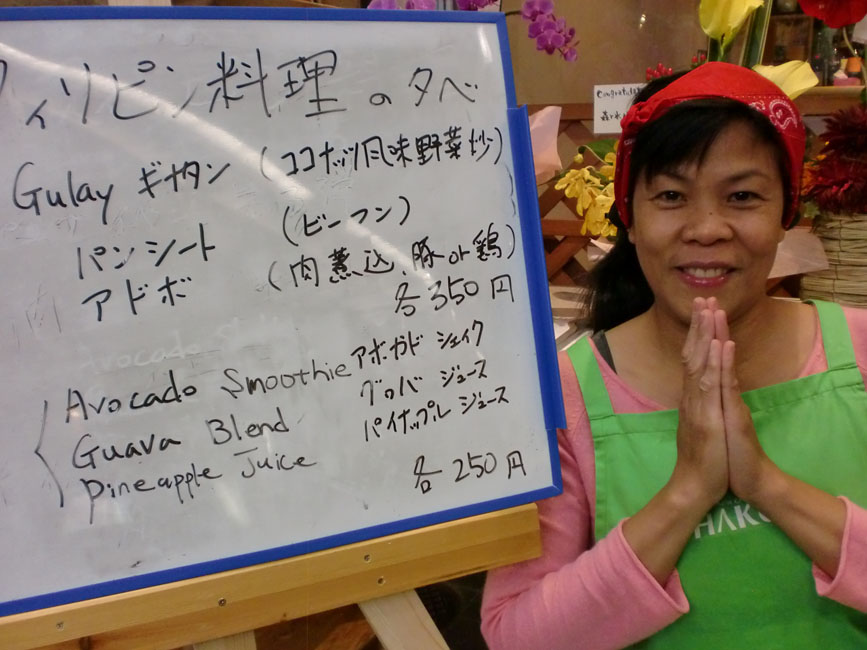 フィリピン料理の夕べ
Gulay ギナタン (ココナッツ風味野菜炒)
パンシート (ビーフン)
アドボ (肉煮込、豚or鶏)
各350円
Avocado Smoothie アボガド シェイク
Guava Blend グァバ ジュース
Pineapple Juice パイナップル ジュース
各250円